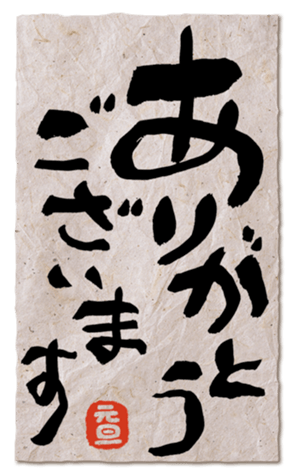 ありがとう
ございます
元旦